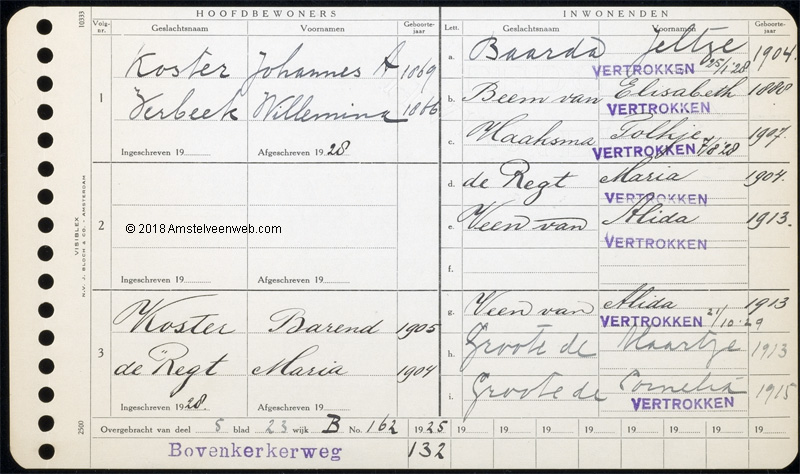 10333
HOOFDBEWONERS
Volg-
nr.
Geslachtsnaam
Voornamen
Geboorte-
jaar
1
Koster Johannes A 1869
Verbeek Willemina 1866
Ingeschreven 19
Afgeschreven 1928
2
© 2018 Amstelveenweb.com
Ingeschreven 19
Afgeschreven 19
3
Koster Barend 1905
de Regt Maria 1904
Ingeschreven 1928.
Afgeschreven 19
INWONENDEN
Lett.
Geslachtsnaam
Voornamen
Geboorte-
jaar
a. Baarda Jeltje 1904.
VERTROKKEN 25/1'28
b. Beem van Elisabeth 1880
VERTROKKEN
c. Haahsma Tolkje 1907.
VERTROKKEN 7/8'28
d. de Regt Maria 1904.
VERTROKKEN
e. Veen van Alida 1913.
VERTROKKEN
f.
g. Veen van Alida 1913
VERTROKKEN 21/10-29
h. Groote de Maartje 1913
i. Groote de Cornelia 1915
VERTROKKEN
Overgebracht van deel 5 blad 23 wijk B No. 162 1925
19 19 19 19 19 19 19 19
Bovenkerkerweg 132
VISIBLEX
N.V. J. BLOCH & CO. - AMSTERDAM
2500